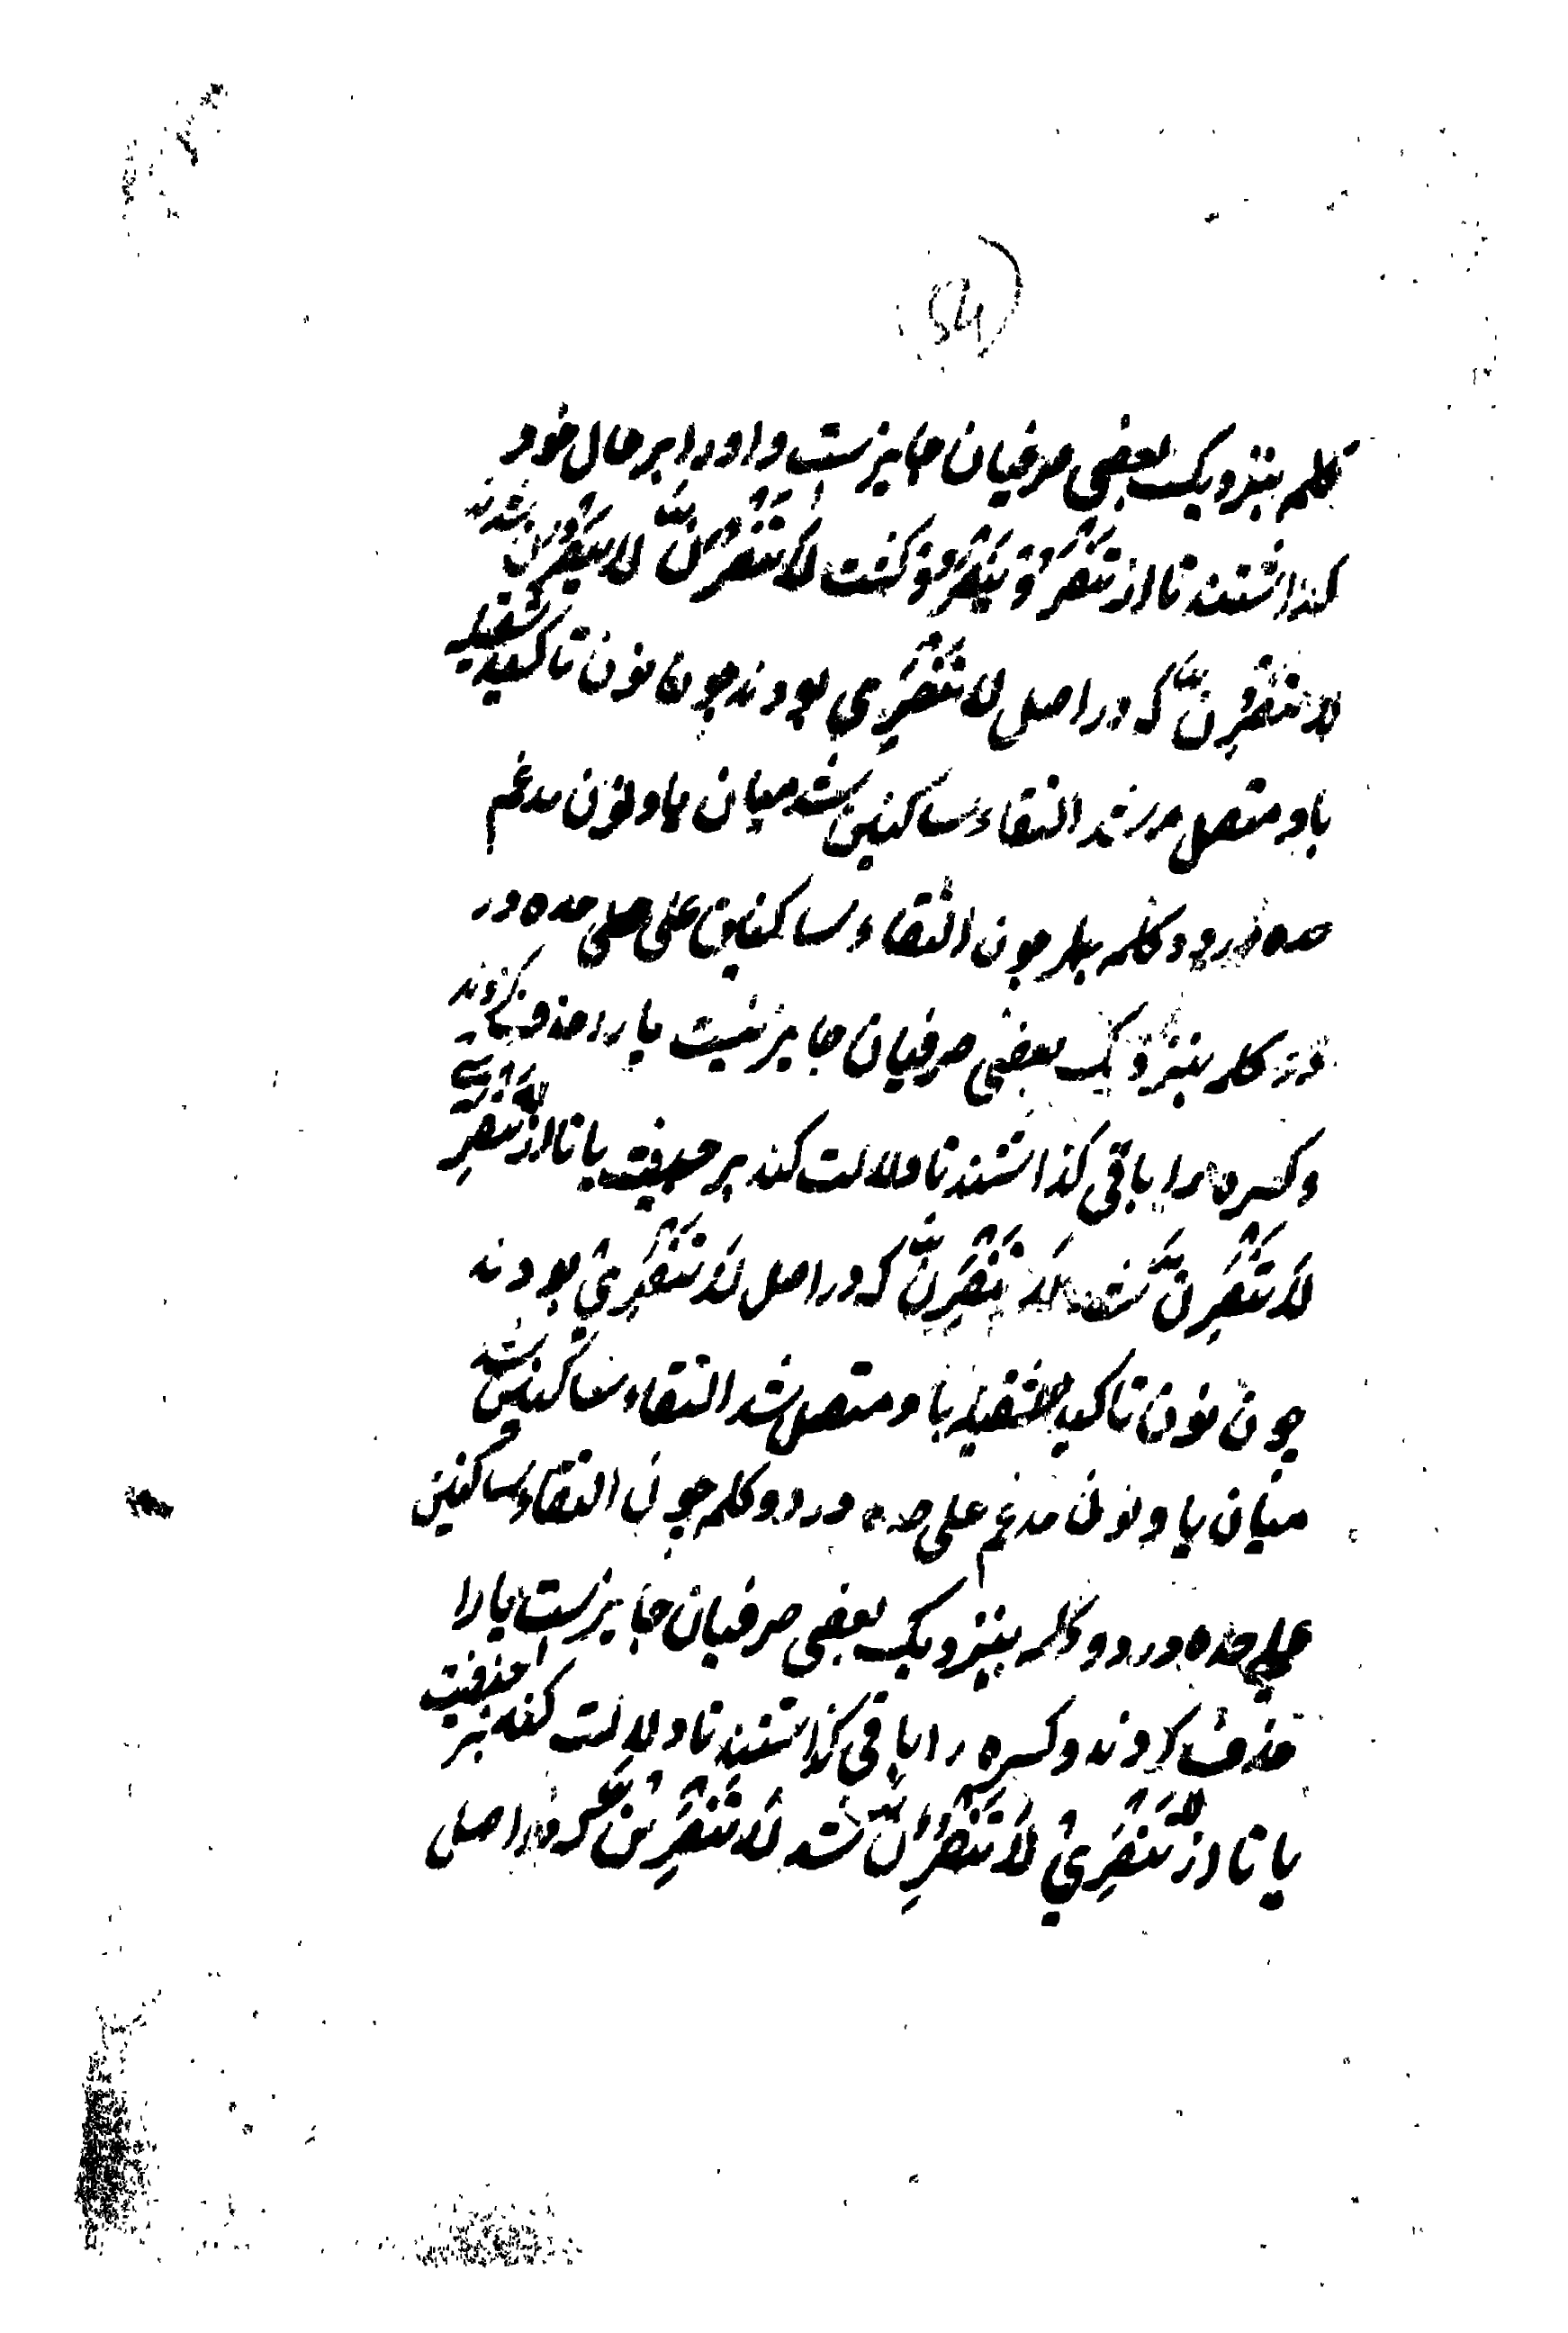 54
کلمه بنزدیک بعضی صرفیان جایزست واو را بر حال خود
کذاشتند تا از تَنْصُرُوْ یَنْصُرُوْ کشت لَاتَنْصُرُنَّ لاینصرن شدند
لاتنصرِنَّ که در اصل لاتَنْصُرِي بودند چون نون تاکید ثقیله
باو متصل شد التقاء ساکنین شد میان یا و نون مدغم
حده در دو کلمه چون التقاء ساکنین علی حده در
دو کلمه بنزدیک بعضی صرفیان جایز نیست یا را حذف کردند
و کسره را باقی کذاشتند تا دلالت کند بر حذفیت یا تا از تنصرِ
لَاتَنْصُرِنَّ شد لَاتَنْصُرِنَّ که در اصل لَاتَنْصُرِيْ بودند
چون نون تاکید ثقیله باو متصل شد التقاء ساکنین شد
میان یا و نون مدغم علی حده در دو کلمه چون التقاء ساکنین
علی حده در دو کلمه بنزدیک بعضی صرفیان جایزست یا را
حذف کردند و کسره را باقی کذاشتند تا دلالت کند بر حذفیت
یا تا از تَنْصُرِيْ لَاتَنْصُرِنَّ شد لَاتَنْصُرِيْنَ که در اصل